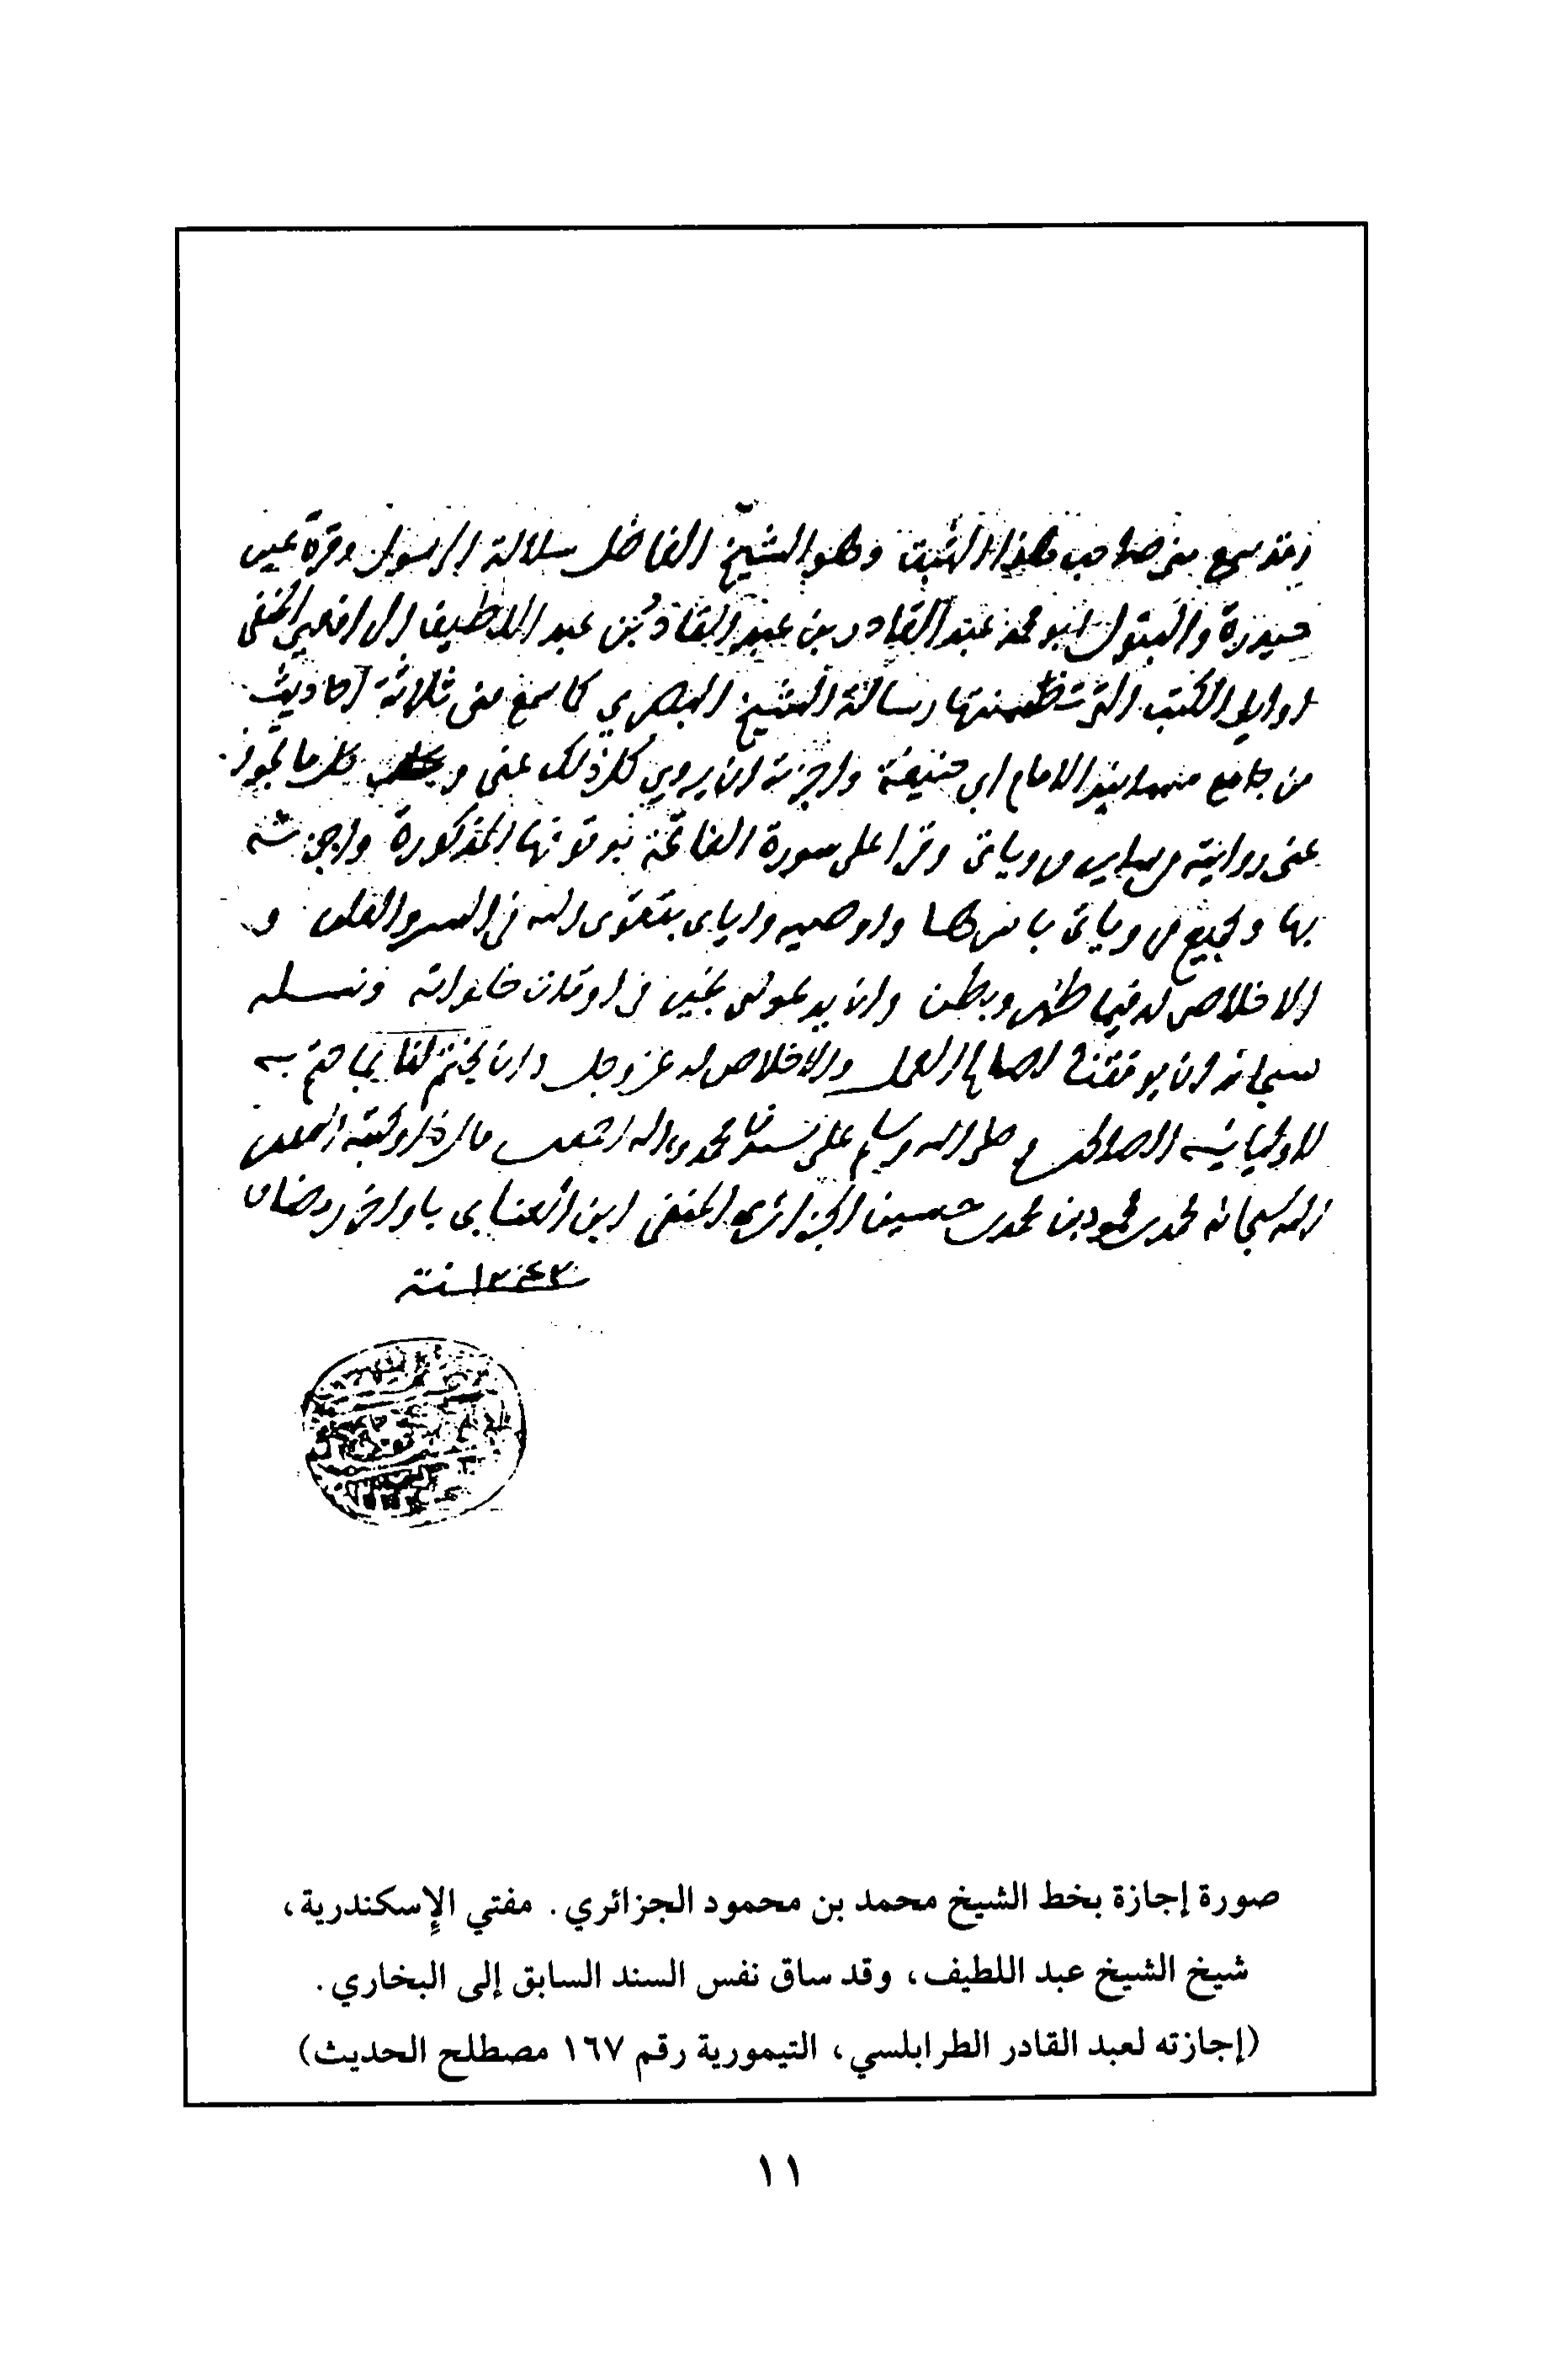 وقد سمع مني صاحب هذا الثبت وهو الشيخ الفاضل سلالة الرسول وقرة عين
حيدرة والبتول ابو محمد عبد القادر بن عبد القادر بن عبد اللطيف الرافعي الحنفي
اوايل الكتب التي تضمنتها رسالة الشيخ البصري كما سمع مني ثلاثة احاديث
من جامع مسانيد الامام ابي حنيفة واجزته ان يروي كل ذلك عني و كل ما تجوز
عني روايته من ساير مروياتي وقرا علي سورة الفاتحة المذكورة واجزته
بها وبجميع مروياتي باسرها واوصيه واياي بتقوى الله في السر والعلن و
الاخلاص له فيما ظهر وبطن وان يدعو لي بخير في اوقات خلواته ونسئله
سبحانه ان يوفقنا لصالح العمل والاخلاص له عز وجل وان يختم لنا بما ختم به
لاوليائه الصالحين وصلى الله وسلم على سيدنا محمد واله اجمعين
الله سبحانه محمد بن محمود بن محمد بن حسين الجزائري الحنفي ابن العنابي باواخر رمضان
سنة ١٢٤٣
صورة إجازة بخط الشيخ محمد بن محمود الجزائري. مفتي الإسكندرية،
شيخ الشيخ عبد اللطيف، وقد ساق نفس السند السابق إلى البخاري.
(إجازته لعبد القادر الطرابلسي، التيمورية رقم ١٦٧ مصطلح الحديث)
١١